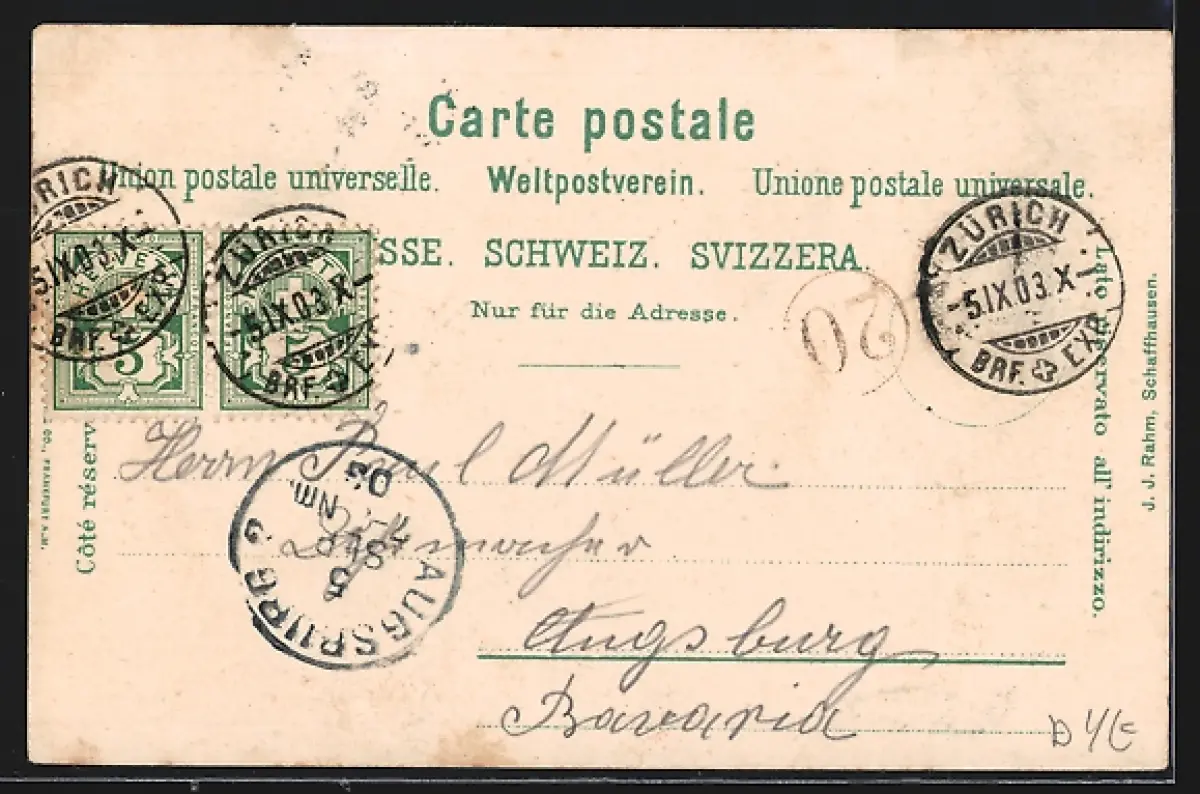 Carte postale
Union postale universelle. Weltpostverein. Unione postale universale.
SSE. SCHWEIZ. SVIZZERA.
Nur für die Adresse.
ZÜRICH
-5.IX.03.X-
BRF. EXP.
ZÜRICH
-5.IX.03.X-
BRF. EX
ZÜRICH
-5.IX.03.X-
BRF. EXP.
5
20
Côté réserv
Lato riservato all' indirizzo.
J. J. Rahm, Schaffhausen.
CO., FRANKFURT A.M.
Herrn Paul Müller
AUGSBURG
5
SEP
NM.
03
Augsburg
Bavaria